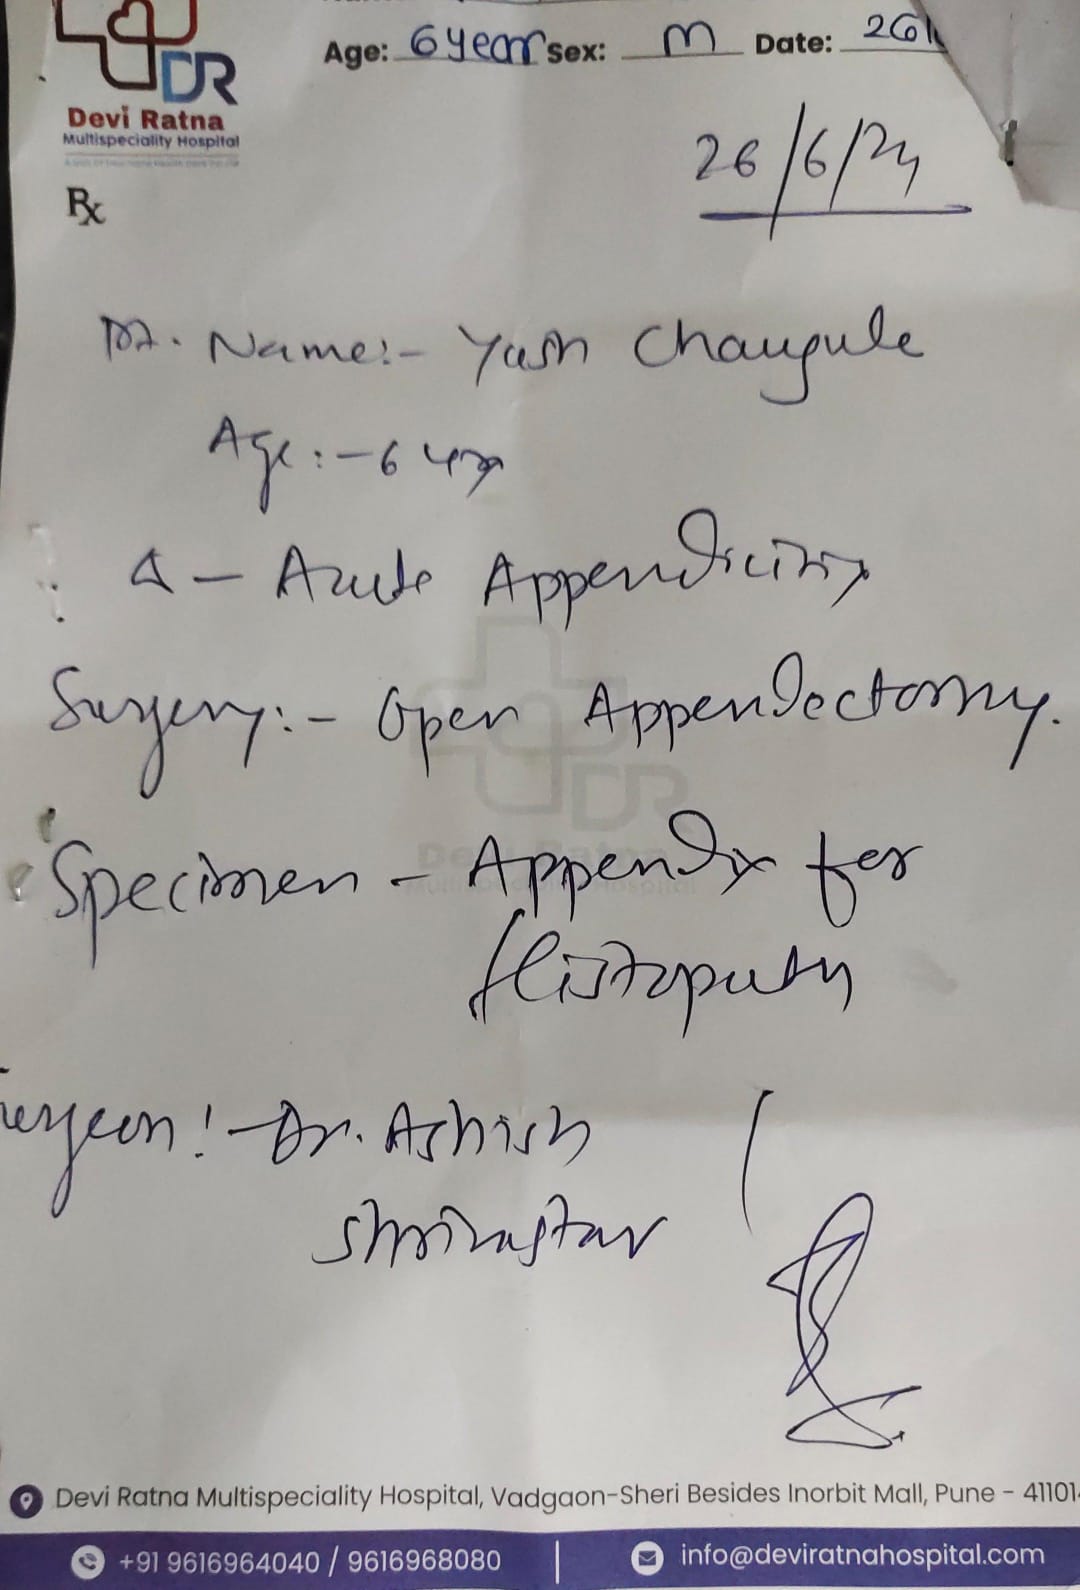 Age: 6 year Sex: M Date: 26
DR
Devi Ratna
Multispeciality Hospital
26/6/24
Rx
Pt. Name:- Yash Chaugule
Age:- 6 yrs
Δ - Acute Appendicitis
Surgery:- Open Appendectomy.
Specimen - Appendix for
Histopath
urgeon:- Dr. Ashish
Shrivastav
Devi Ratna Multispeciality Hospital, Vadgaon-Sheri Besides Inorbit Mall, Pune - 41101
+91 9616964040 / 9616968080 | info@deviratnahospital.com